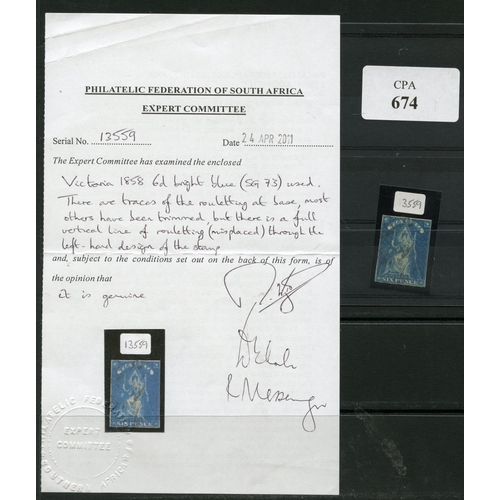 PHILATELIC FEDERATION OF SOUTH AFRICA
EXPERT COMMITTEE
Serial No. 13559 Date 24 APR 2011
The Expert Committee has examined the enclosed
Victoria 1858 6d bright blue (SG 73) used.
There are traces of the rouletting at base, most
others have been trimmed, but there is a full
vertical line of rouletting (misplaced) through the
left-hand design of the stamp
and, subject to the conditions set out on the back of this form, is of
the opinion that
it is genuine
13559
SIX PENCE
EXPERT
COMMITTEE
CPA
674
3559
SIX PENCE